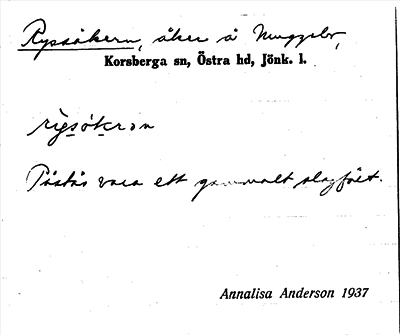 Ryssåkern, åker å Muggebo,
Korsberga sn, Östra hd, Jönk. l.
rỳsåkrən
Påstås vara ett gammalt slagfält.
Annalisa Anderson 1937